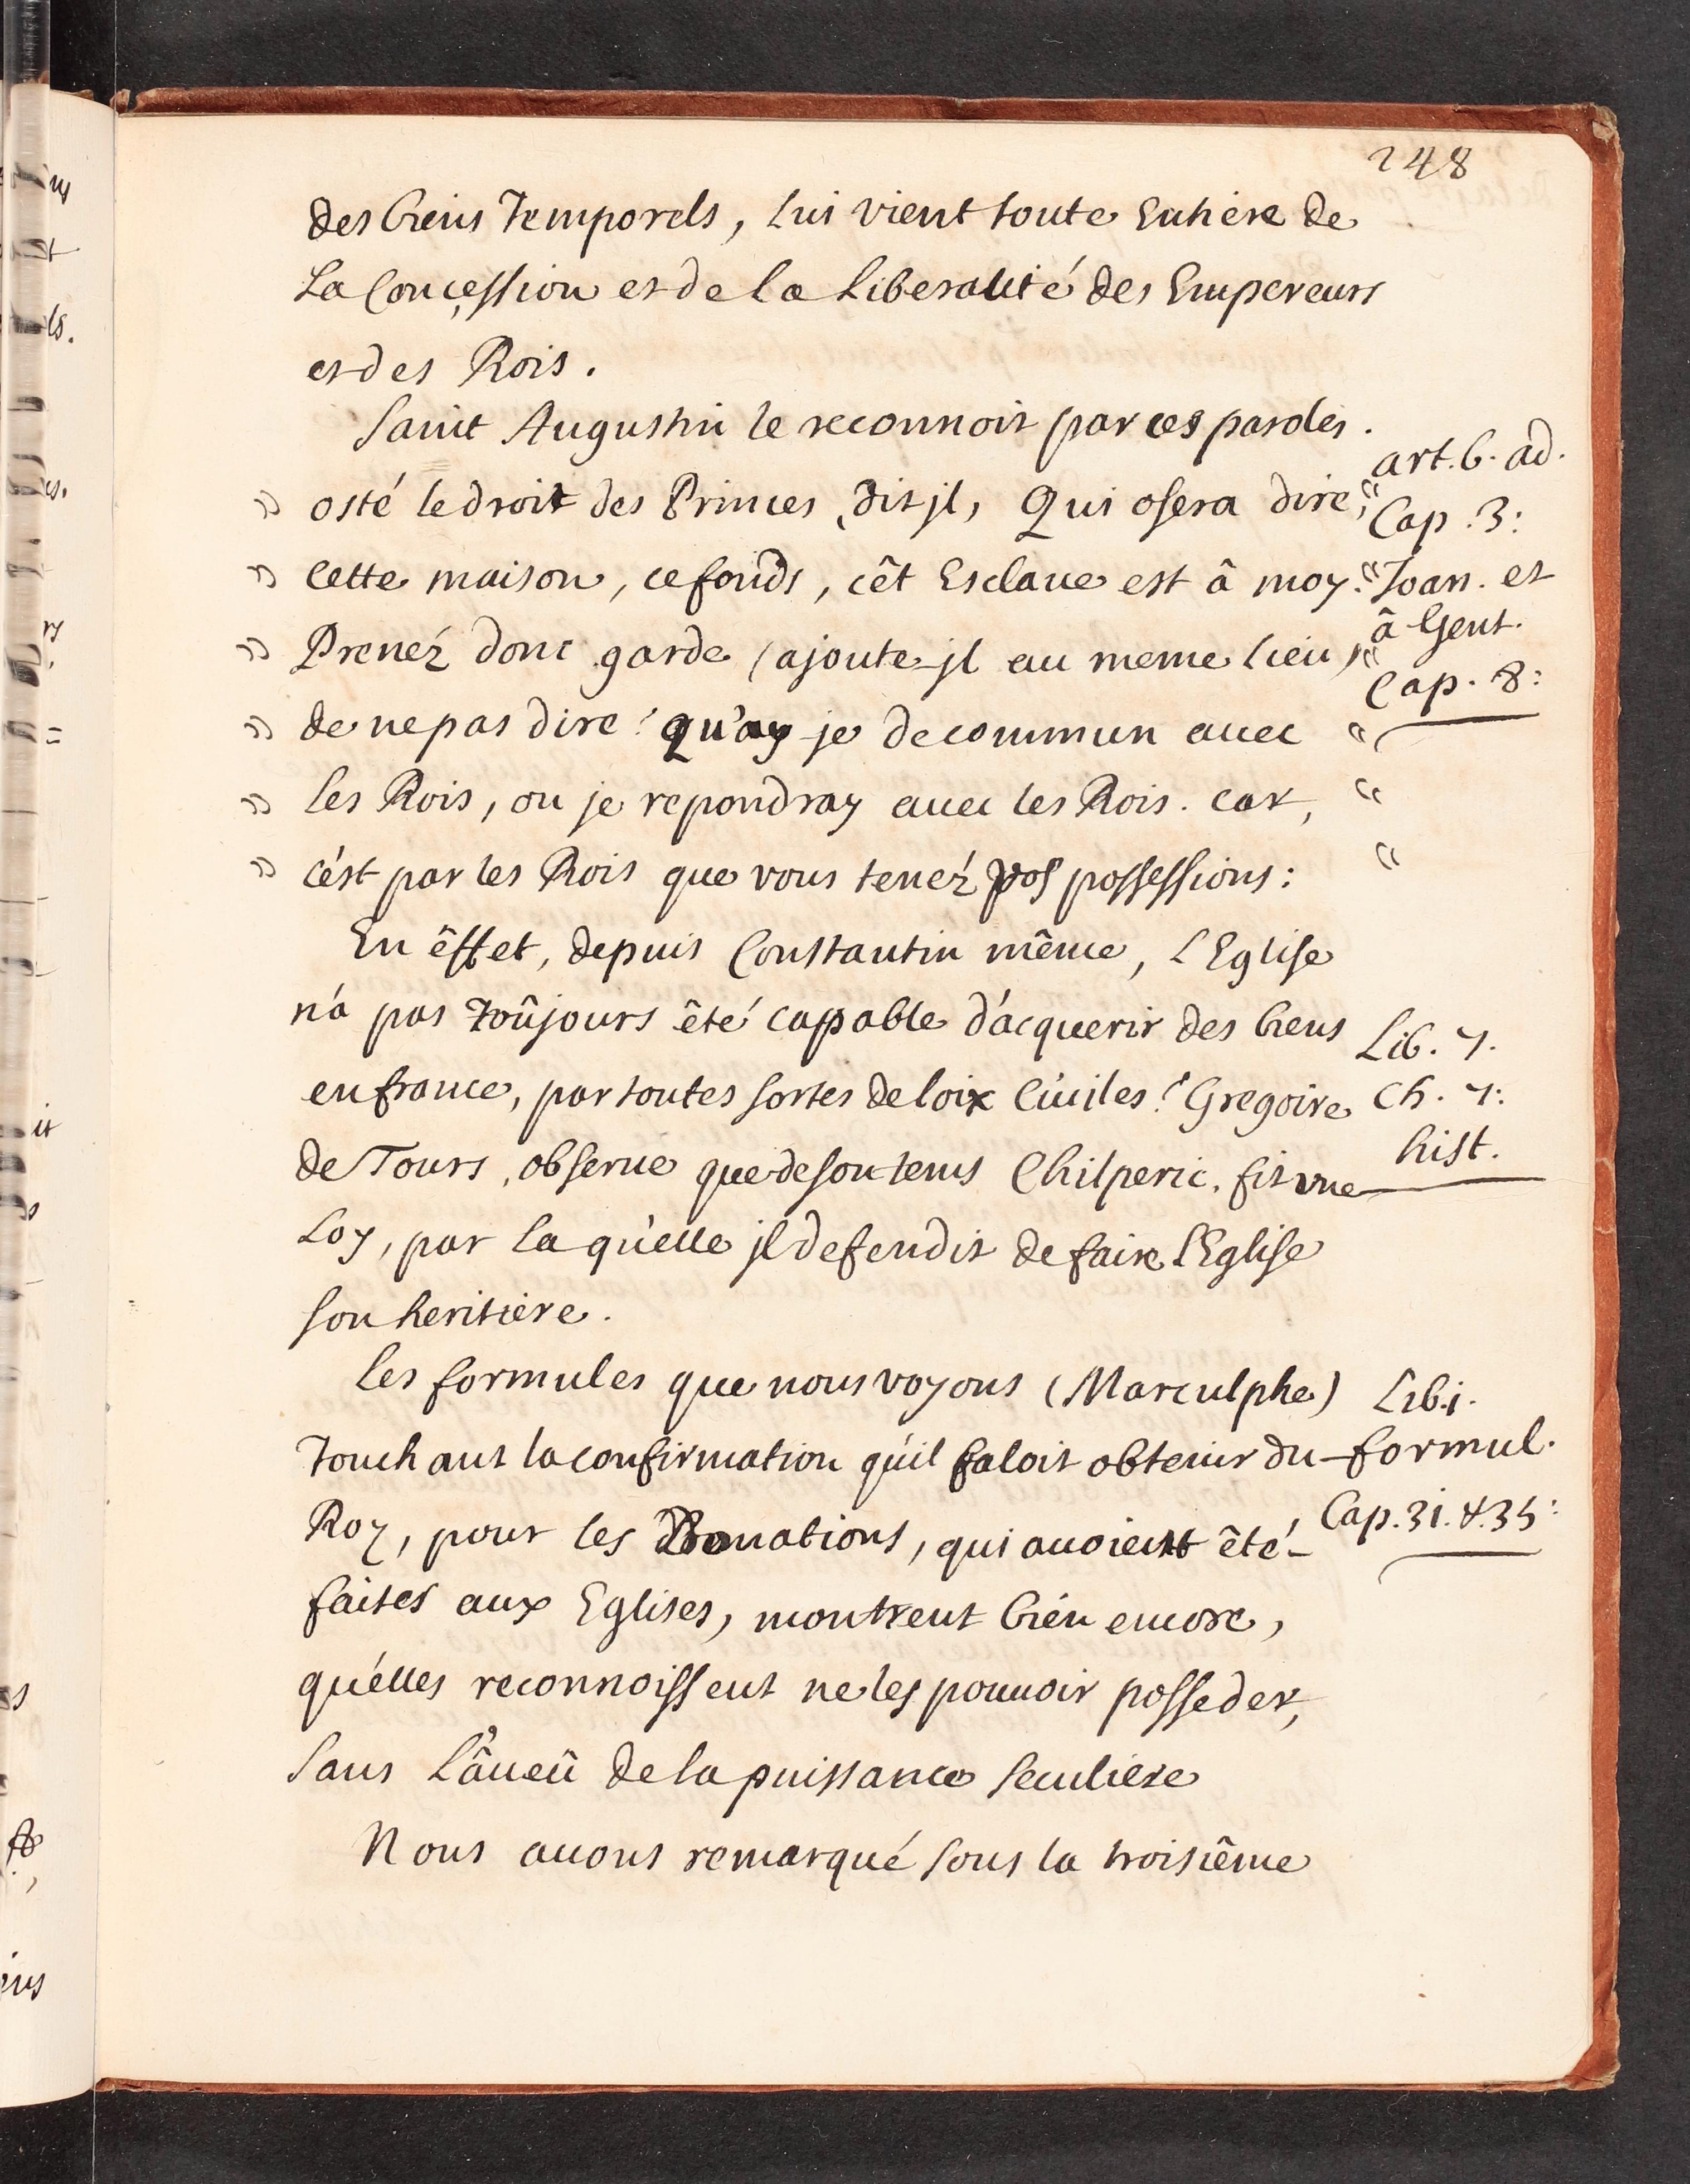 248
des biens Temporels, lui vient toute Entiere de
La Concession et de la Liberalité des Empereurs
et des Rois.
Saint Augustin le reconnoit par ces paroles.
" osté le droit des Princes, dit jl, Qui osera dire, "
" Cette maison, ce fonds, cêt Esclaue est â moy. "
" Prenéz donc garde (ajoute-jl au meme lieu) "
" de ne pas dire: qu'ay-je de commun auec "
" les Rois, ou je repondray auec les Rois. car, "
" c'ést par les Rois que vous tenéz vos possessions: "
art. 6. ad.
Cap. 3:
Joan. et
â Gent.
Cap. 8:
En êffet, depuis Constantin même, L'Eglise
n'á pas toûjours êté capable d'ácquerir des biens
en france, par toutes sortes de loix Ciuiles: Gregoire
de Tours, obserue que de son tems Chilperic, fit vne
Loy, par la qu'elle jl defendit de faire L'Eglise
son heritiere.
Lib. 7.
Ch. 7:
hist.
Les formules que nous voyons (Marculphe)
Touchant la confirmation qu'il faloit obtenir du
Roy, pour les Donations, qui auoient êté
faites aux Eglises, montrent bién encore,
qu'élles reconnoissent ne les pouuoir posseder,
sans L'âueû de la puissance seculiere
Lib. i.
formul.
Cap. 3i. & 35:
Nous auons remarqué sous la troisiême